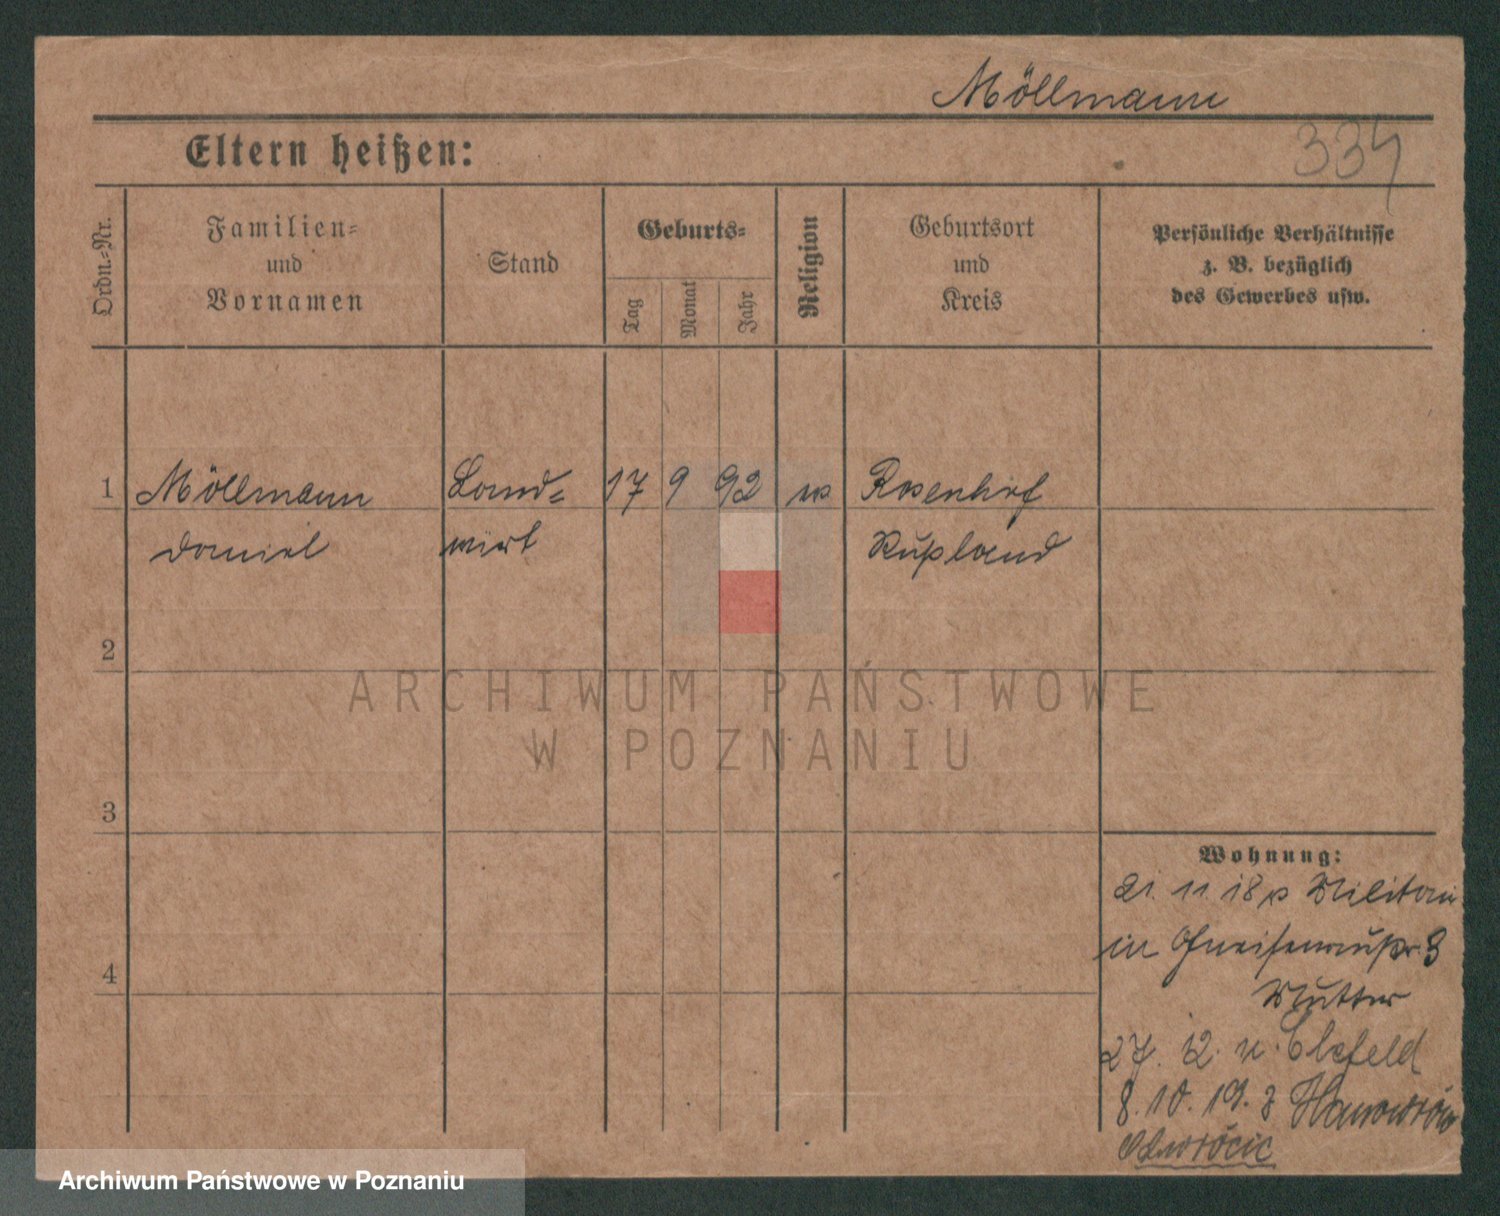 Möllmann
334
Eltern heißen:
Ordn.-Nr.
Familien-
und
Vornamen
Stand
Geburts-
Tag
Monat
Jahr
Religion
Geburtsort
und
Kreis
Persönliche Verhältnisse
z. B. bezüglich
des Gewerbes usw.
1
Möllmann
Land-
17
9
92
Rosenhof
Daniel
wirt
Rußland
2
3
4
Wohnung:
21. 11. 18 Militär
in Gneisenaustr. 3
Mutter
27. 12. n.
8. 10. 19. z
Odwrócić
ARCHIWUM PAŃSTWOWE
W POZNANIU
Archiwum Państwowe w Poznaniu